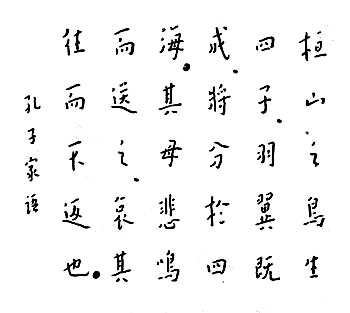 桓山之鳥生
四子.羽翼既
成.將分於四
海.其母悲鳴
而送之.哀其
往而不返也.
孔子家語